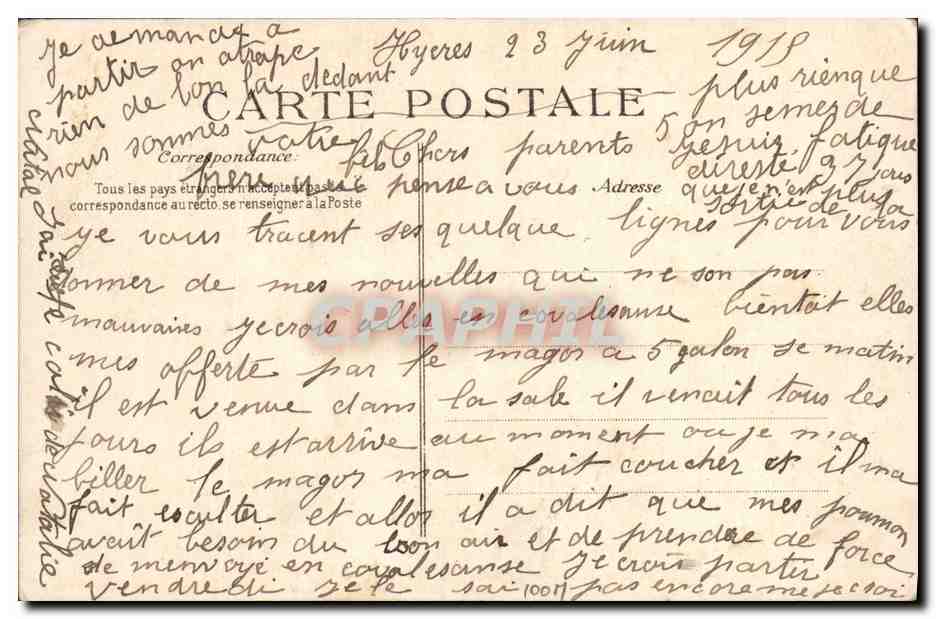 Hyeres 23 Juin 1915
CARTE POSTALE
Correspondance:
Tous les pays étrangers n'acceptent pas de
correspondance au recto, se renseigner à la Poste
Adresse
Chers parents
pense a vous
ye vous tracent ses quelque lignes pour vous
onner de mes nouvelles qui ne son pas
mauvaires yecrois alles en covalesanse bientait elles
mes offerte par le magor a 5 galon se matin
il est venue dans la sale il venait tous les
jours ils estarrive au moment ou je ma
biller le magor ma fait coucher et il ma
fait esculter et allor il a dit que mes poumon
avait besoin du bon air et de prendre de force
de menvoyé en covalesanse Je crois partir
vendredi je le sai pas encore me je soi
plus rienque
5 on semes de
Je suis fatigue
direste 27
que je n'est plus
sortie de
je demande a
partir on atrape
rien de bon la dedant
nous sommes votre
fils
qui
Jai